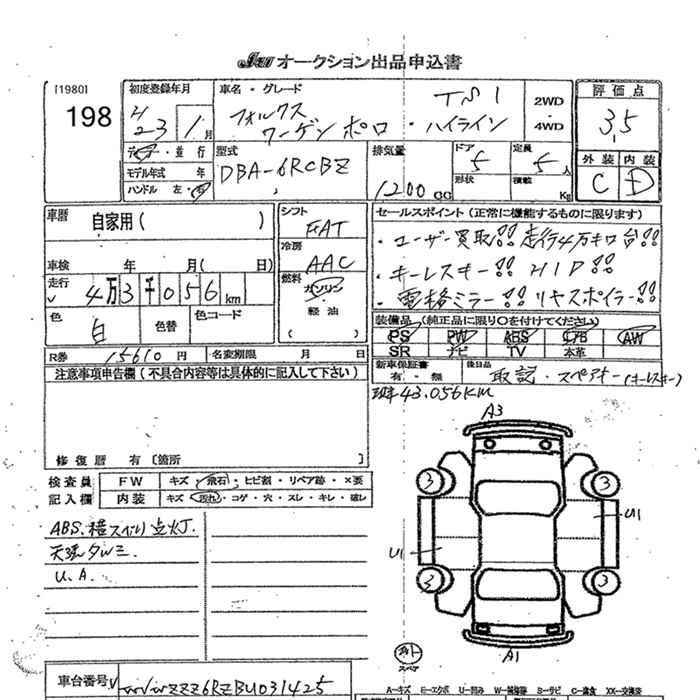 JU オークション出品申込書
[1980]
198
初度登録年月
H 23 1月
車名・グレード
TSI
フォルクス
ワーゲン ポロ・ハイライン
2WD
・
4WD
評価点
3.5
外装 内装
C D
デ・並行
モデル年式 年
ハンドル 左・右
型式
DBA-6RCBZ
排気量
1200 CC
ドア 5
形状
定員 5人
積載 Kg
車歴 自家用( )
車検 年 月( 日)
走行 4万3千056km
色 白 色替 色コード
シフト FAT
冷房 AAC
燃料 ガソリン
軽油
( )
セールスポイント(正常に機能するものに限ります)
・ユーザー買取!!走行4万キロ台!!
・キーレスキー!! HID!!
・電格ミラー!! リヤスポイラー!!
装備品(純正品に限り○を付けてください)
PS PW ABS エアB AW
SR ナビ TV 本革
R券 15610円 名変期限 月 日
新車保証書
有・無
後日品 取説・スペアキー(キーレスキー)
注意事項申告欄(不具合内容等は具体的に記入して下さい)
修復歴 有〔箇所 〕
43.056KM
検査員
記入欄
FW キズ・飛石・ヒビ割・リペア跡・×要
内装 キズ・汚れ・コゲ・穴・スレ・キレ・破レ
ABS.横スベリ点灯.
天張タルミ
U.A.
A3
3 3
U1
U1
3 3
外
スペア
A1
A-キズ E-エクボ U-凹み W-補修跡 S-サビ C-腐食 XX-交換済
車台番号 WVWZZZ6RZBU031425